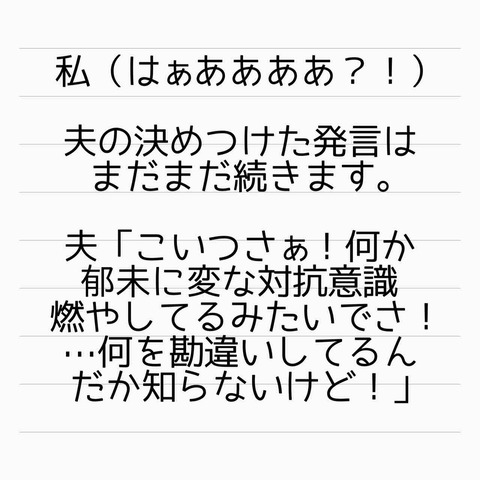 私（はぁああああ？！）
夫の決めつけた発言は
まだまだ続きます。
夫「こいつさぁ！何か
郁未に変な対抗意識
燃やしてるみたいでさ！
…何を勘違いしてるん
だか知らないけど！」